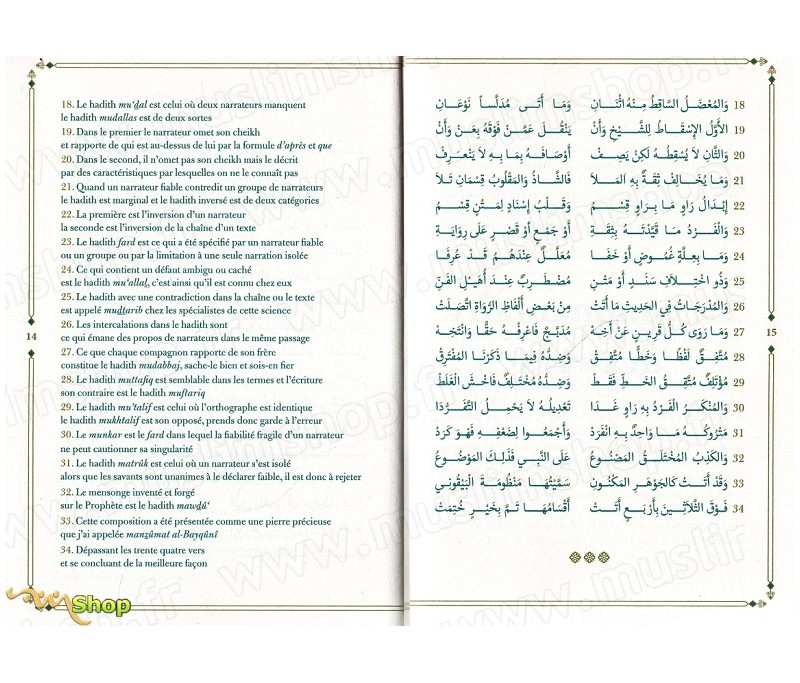 18. Le hadith mu‘ḍal est celui où deux narrateurs manquent
le hadith mudallas est de deux sortes
19. Dans le premier le narrateur omet son cheikh
et rapporte de qui est au-dessus de lui par la formule d’après et que
20. Dans le second, il n’omet pas son cheikh mais le décrit
par des caractéristiques par lesquelles on ne le connaît pas
21. Quand un narrateur fiable contredit un groupe de narrateurs
le hadith est marginal et le hadith inversé est de deux catégories
22. La première est l’inversion d’un narrateur
la seconde est l’inversion de la chaîne d’un texte
23. Le hadith fard est ce qui a été spécifié par un narrateur fiable
ou un groupe ou par la limitation à une seule narration isolée
24. Ce qui contient un défaut ambigu ou caché
est le hadith mu‘allal, c’est ainsi qu’il est connu chez eux
25. Le hadith avec une contradiction dans la chaîne ou le texte
est appelé muḍtarib chez les spécialistes de cette science
26. Les intercalations dans le hadith sont
ce qui émane des propos de narrateurs dans le même passage
27. Ce que chaque compagnon rapporte de son frère
constitue le hadith mudabbaj, sache-le bien et sois-en fier
28. Le hadith muttafiq est semblable dans les termes et l’écriture
son contraire est le hadith muftariq
29. Le hadith mu’talif est celui où l’orthographe est identique
le hadith mukhtalif est son opposé, prends donc garde à l’erreur
30. Le munkar est le fard dans lequel la fiabilité fragile d’un narrateur
ne peut cautionner sa singularité
31. Le hadith matrûk est celui où un narrateur s’est isolé
alors que les savants sont unanimes à le déclarer faible, il est donc à rejeter
32. Le mensonge inventé et forgé
sur le Prophète est le hadith mawḍû‘
33. Cette composition a été présentée comme une pierre précieuse
que j’ai appelée manzûmat al-Bayqûnî
34. Dépassant les trente quatre vers
et se concluant de la meilleure façon
14
18 وَالْمُعْضَلُ السَّاقِطُ مِنْهُ اثْنَانِ وَمَا أَتَى مُدَلَّساً نَوْعَانِ
19 الأَوَّلُ الإِسْقَاطُ لِلشَّيْخِ وَأَنْ يَنْقُلَ عَمَّنْ فَوْقَهُ بِعَنْ وَأَنْ
20 وَالثَّانِ لاَ يُسْقِطُهُ لَكِنْ يَصِفْ أَوْصَافَهُ بِمَا بِهِ لاَ يَنْعَرِفْ
21 وَمَا يُخَالِفْ ثِقَةٌ بِهِ الْمَلاَ فَالشَّاذُ وَالْمَقْلُوبُ قِسْمَانِ تَلاَ
22 إِبْدَالُ رَاوٍ مَا بِرَاوٍ قِسْمُ وَقَلْبُ إِسْنَادٍ لِمَتْنٍ قِسْمُ
23 وَالْفَرْدُ مَا قَيَّدْتَهُ بِثِقَةِ أَوْ جَمْعٍ أَوْ قَصْرٍ عَلَى رِوَايَةِ
24 وَمَا بِعِلَّةٍ غُمُوضٍ أَوْ خَفَا مُعَلَّلٌ عِنْدَهُمْ قَدْ عُرِفَا
25 وَذُو اخْتِلاَفِ سَنَدٍ أَوْ مَتْنِ مُضْطَرِبٌ عِنْدَ أُهَيْلِ الْفَنِّ
26 وَالْمُدْرَجَاتُ فِي الْحَدِيثِ مَا أَتَتْ مِنْ بَعْضِ أَلْفَاظِ الرُّوَاةِ اتَّصَلَتْ
27 وَمَا رَوَى كُلُّ قَرِينٍ عَنْ أَخِهْ مُدَبَّجٌ فَاعْرِفْهُ حَقًّا وَانْتَخِهْ
28 مُتَّفِقٌ لَفْظًا وَخَطًّا مُتَّفِقْ وَضِدُّهُ فِيمَا ذَكَرْنَا الْمُفْتَرِقْ
29 مُؤْتَلِفٌ مُتَّفِقُ الْخَطِّ فَقَطْ وَضِدُّهُ مُخْتَلِفٌ فَاخْشَ الْغَلَطْ
30 وَالْمُنْكَرُ الْفَرْدُ بِهِ رَاوٍ غَدَا تَعْدِيلُهُ لاَ يَحْمِلُ التَّفَرُّدَا
31 مَتْرُوكُهُ مَا وَاحِدٌ بِهِ انْفَرَدْ وَأَجْمَعُوا لِضَعْفِهِ فَهْوَ كَرَدْ
32 وَالْكَذِبُ الْمُخْتَلَقُ الْمَصْنُوعُ عَلَى النَّبِي فَذَلِكَ الْمَوْضُوعُ
33 وَقَدْ أَتَتْ كَالْجَوْهَرِ الْمَكْنُونِ سَمَّيْتُهَا مَنْظُومَةَ الْبَيْقُونِي
34 فَوْقَ الثَّلاَثِينَ بِأَرْبَعٍ أَتَتْ أَقْسَامُهَا تَمَّ بِخَيْرٍ خُتِمَتْ
15
Shop
www.muslimshop.fr